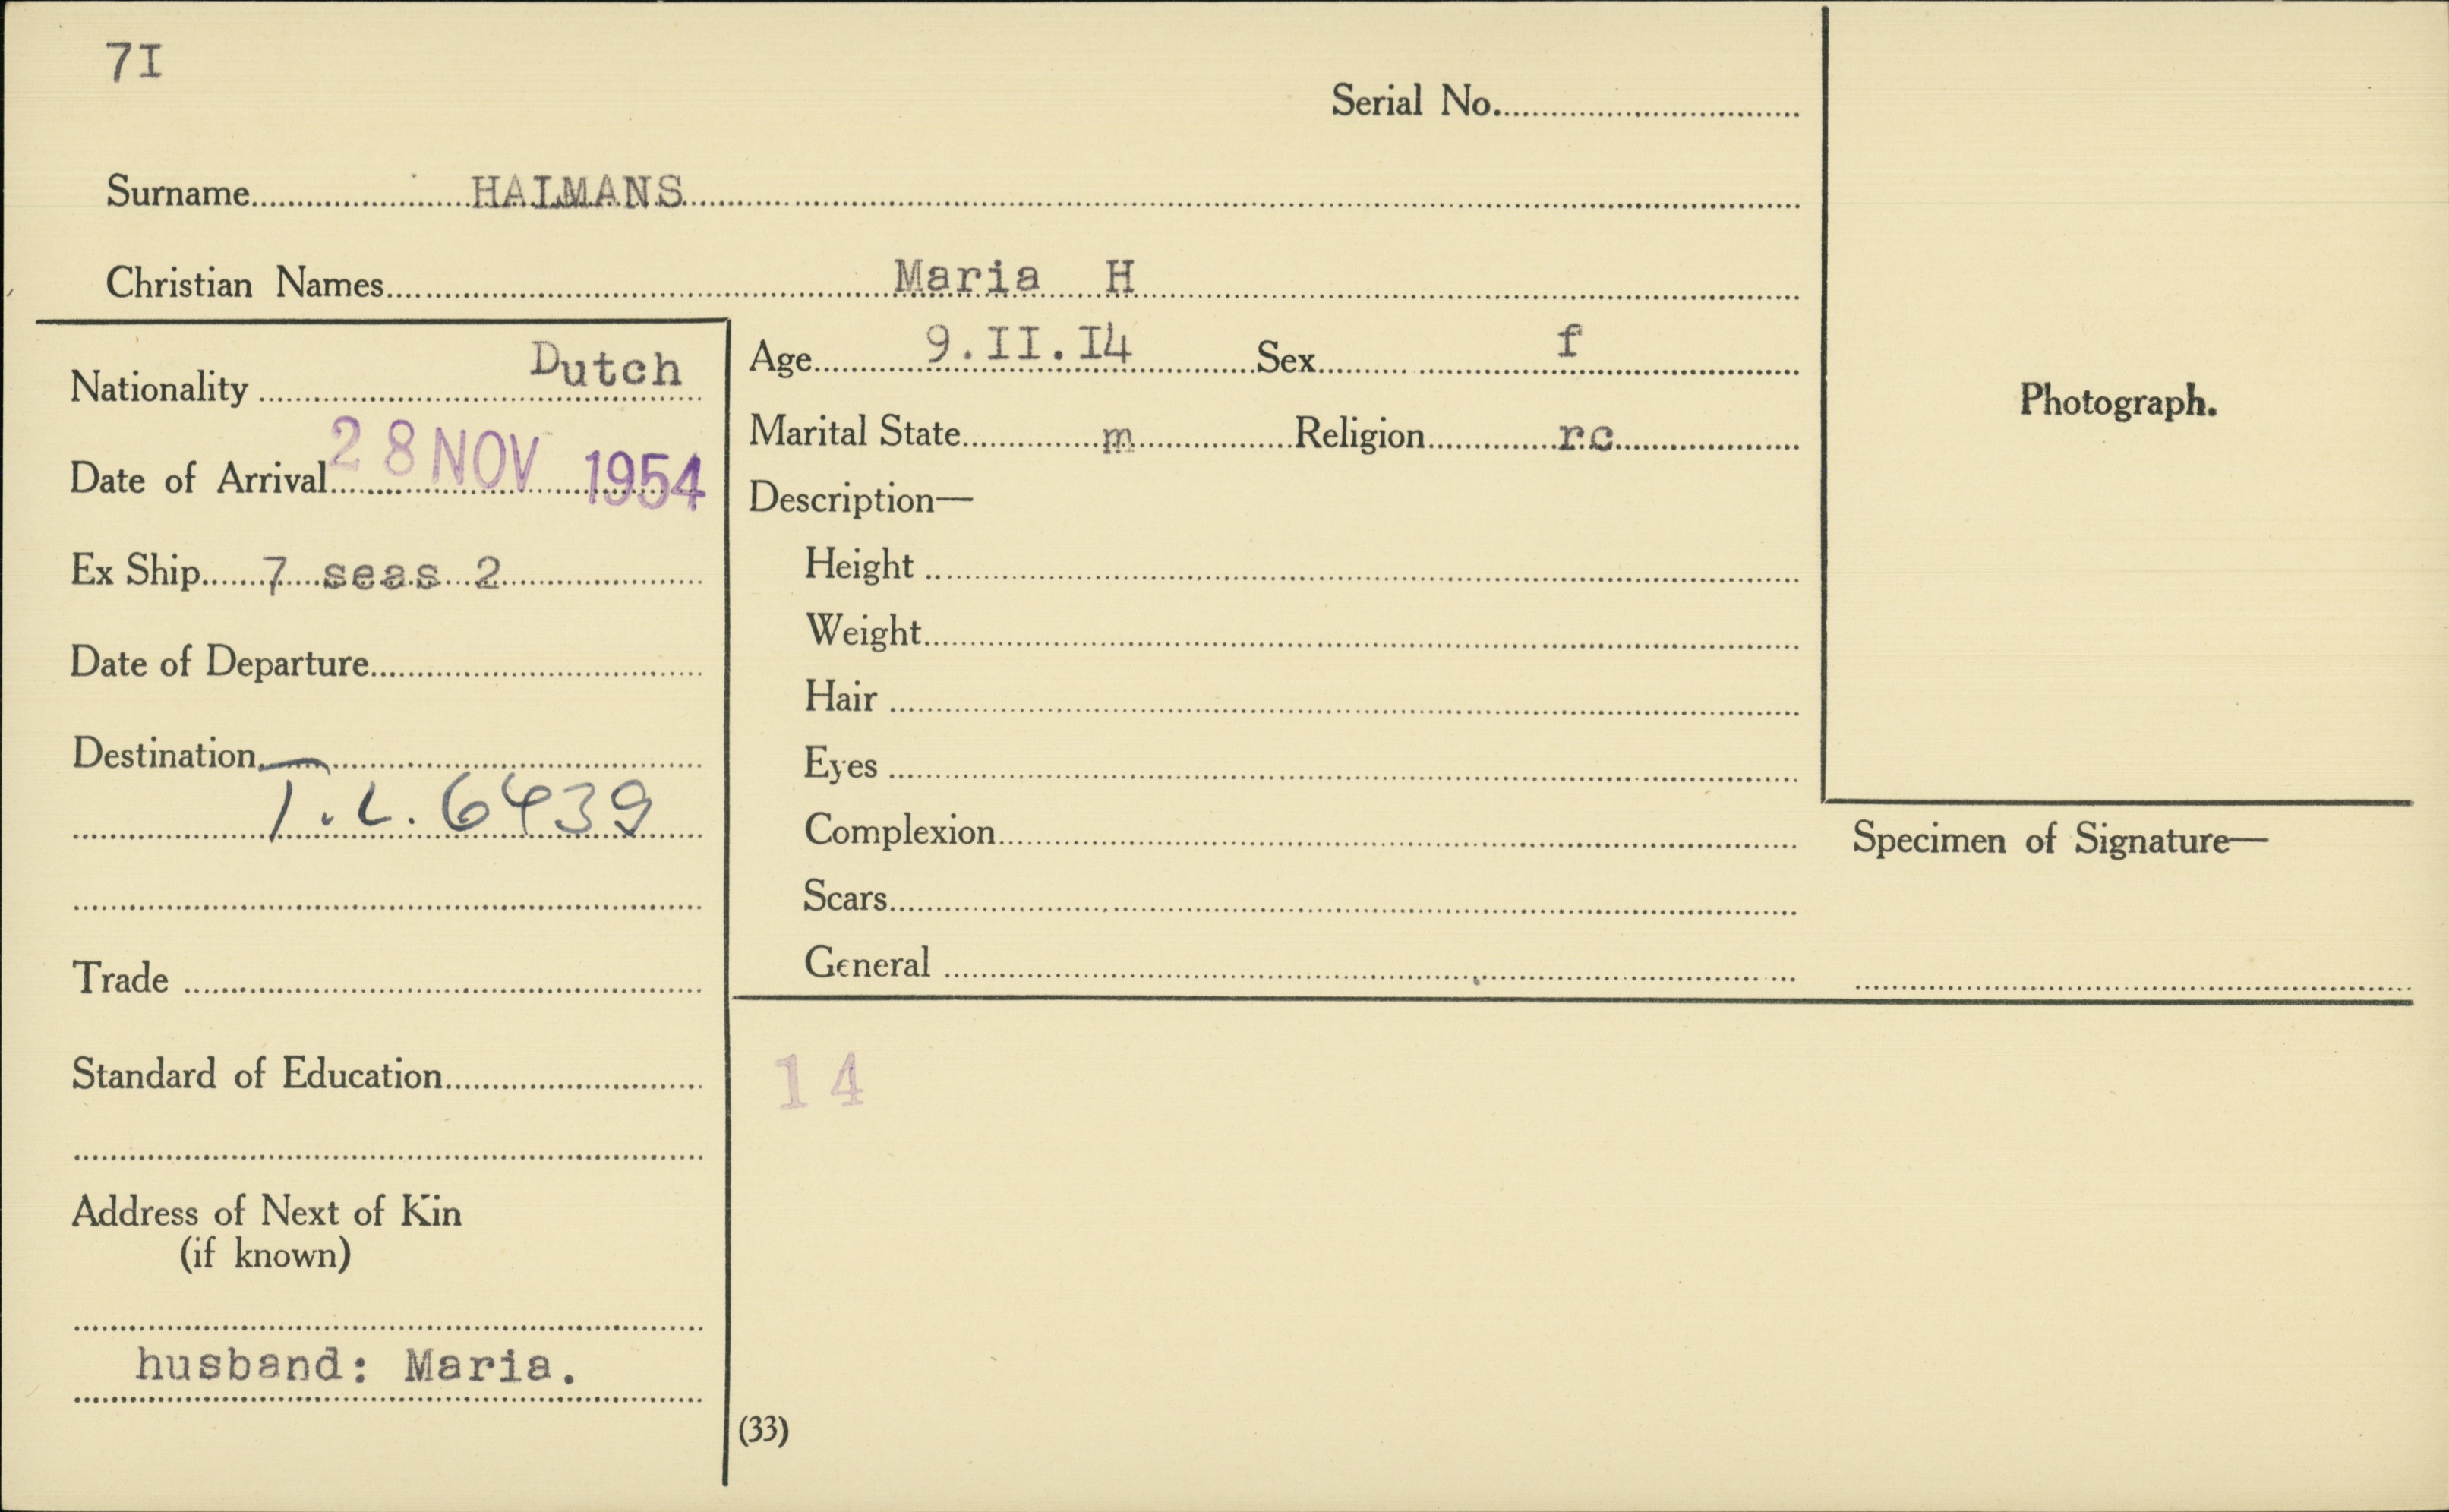 7I
Serial No.
Surname HALMANS
Christian Names Maria H
Nationality Dutch
Date of Arrival 28 NOV 1954
Ex Ship 7 seas 2
Date of Departure
Destination
T.L. 6439
Trade
Standard of Education
Address of Next of Kin
(if known)
husband: Maria.
Age 9.II.I4 Sex f
Marital State m Religion rc
Description—
Height
Weight
Hair
Eyes
Complexion
Scars
General
14
(33)
Photograph.
Specimen of Signature—